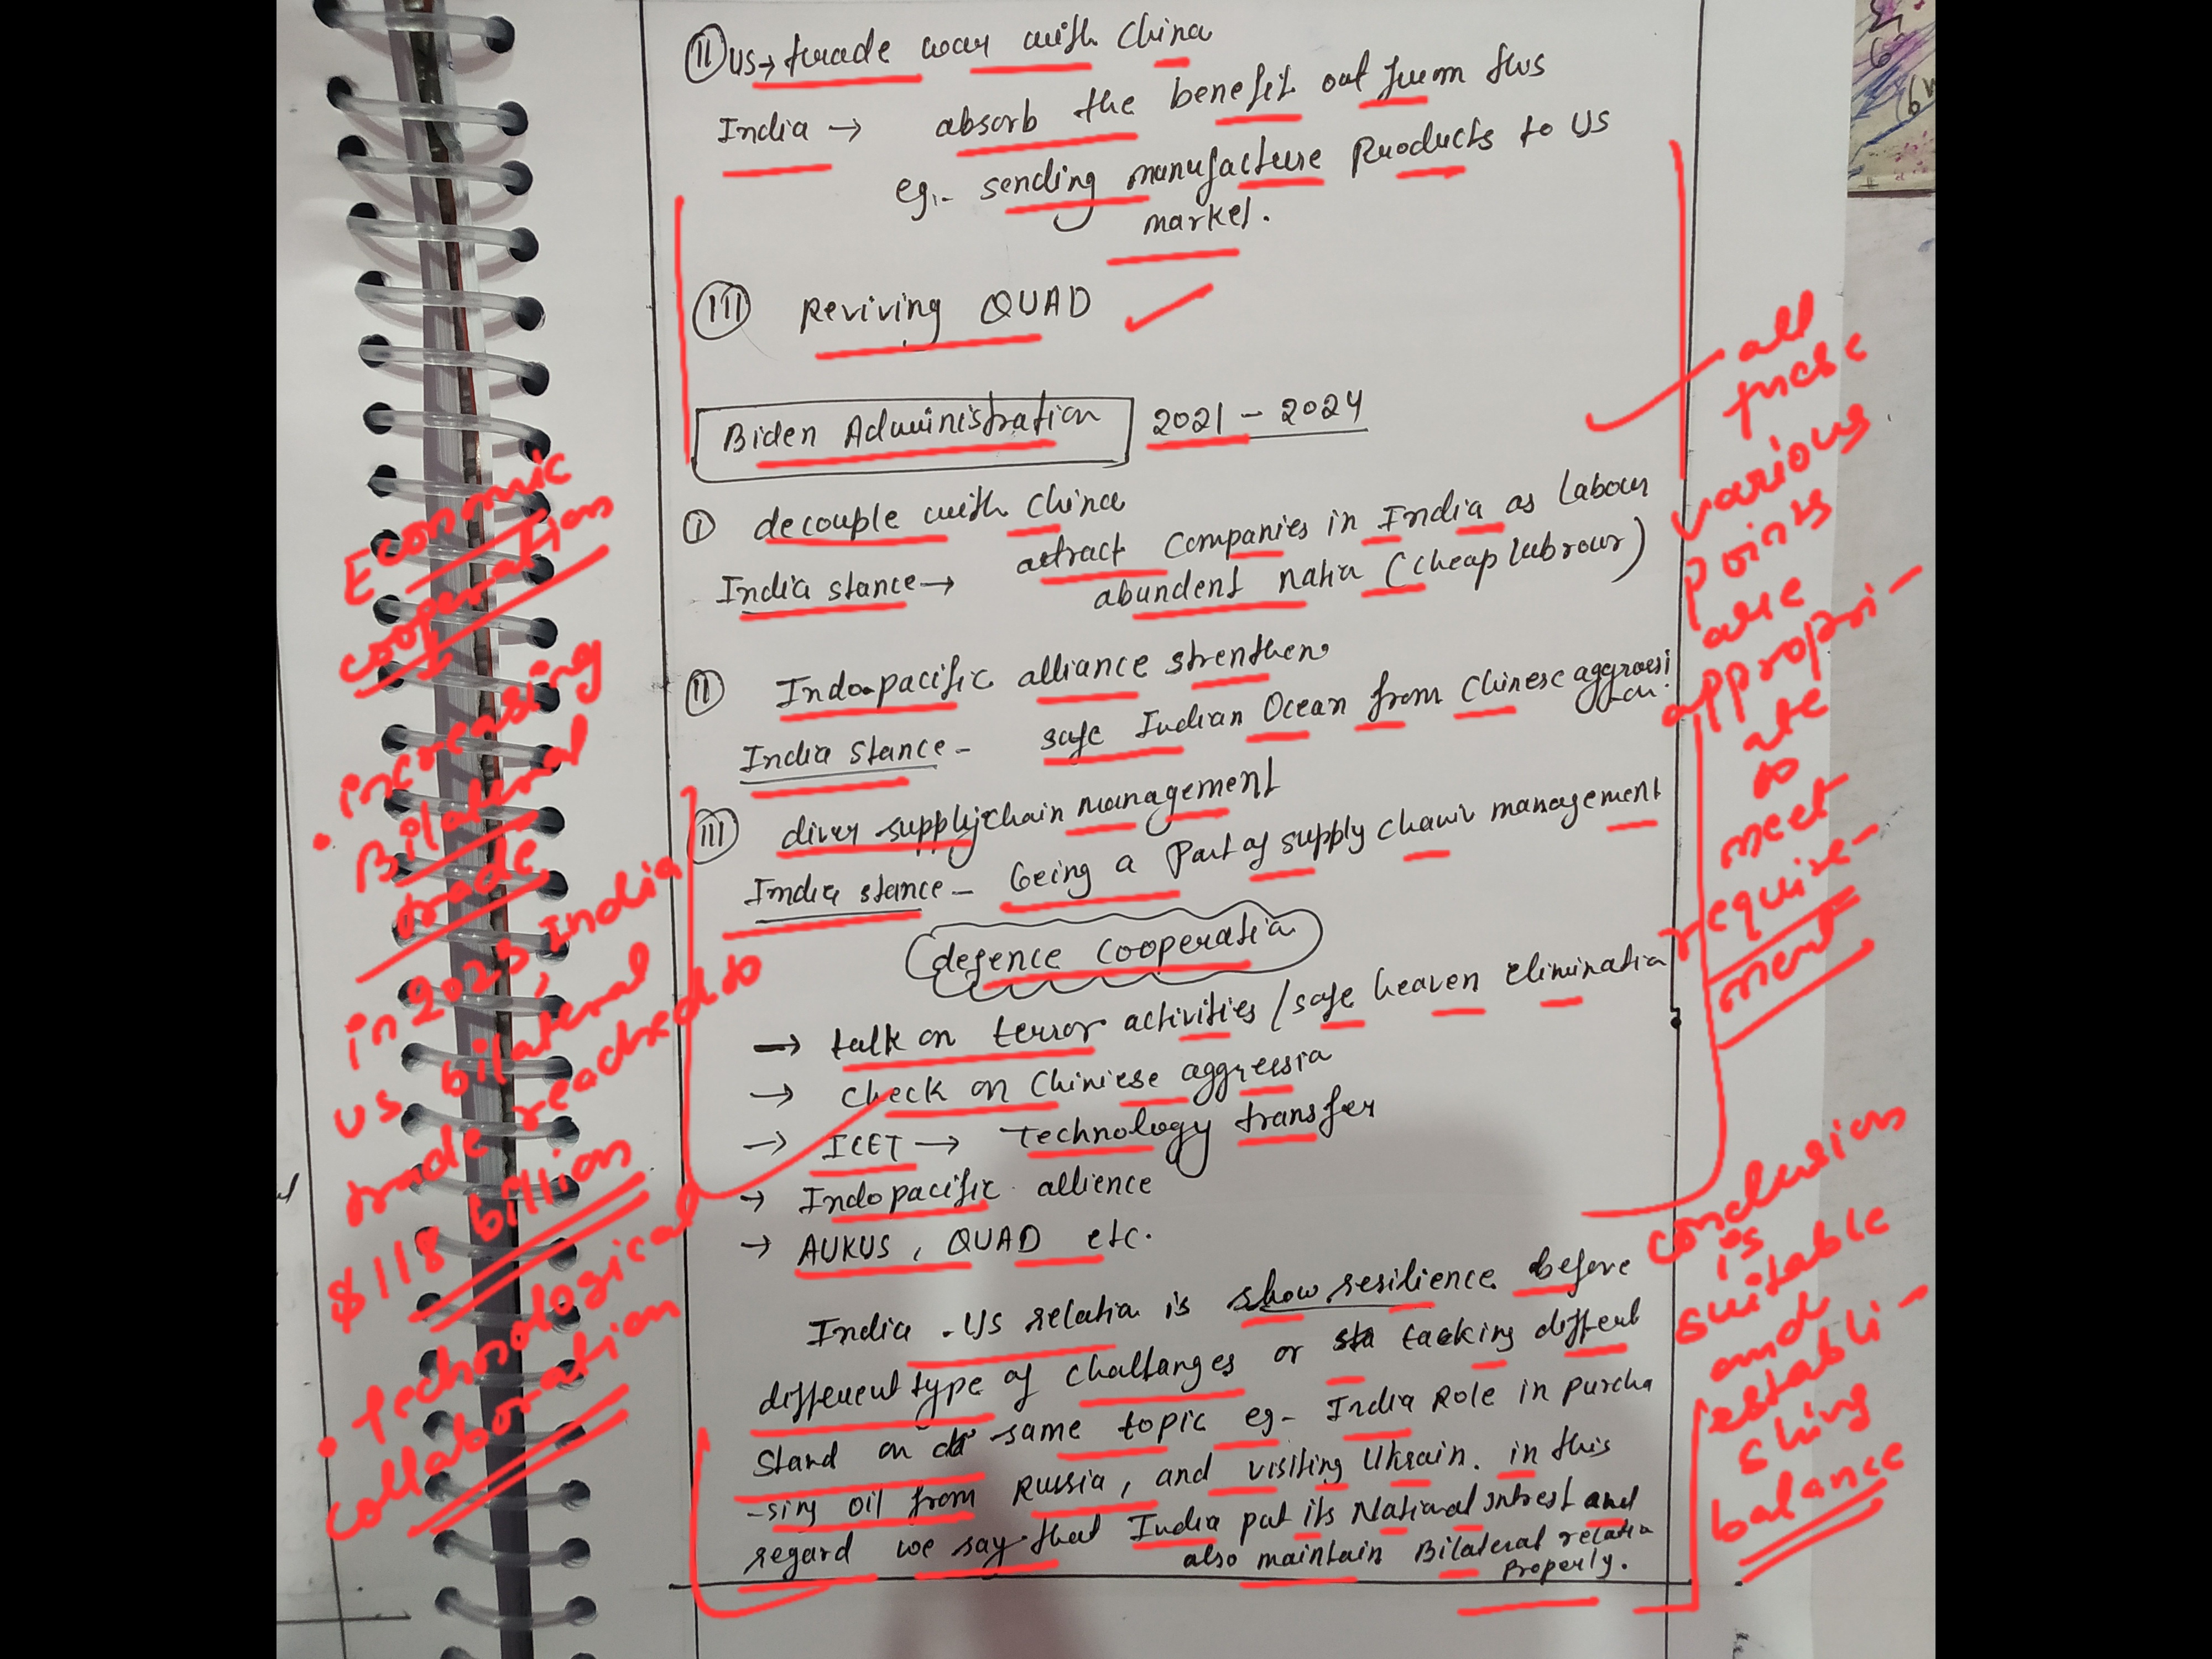 II US → trade war with China
India → absorb the benefit out from this
eg:- sending manufacture products to US
market.
III Reviving QUAD
Biden Administration 2021 - 2024
I decouple with China
India stance → attract Companies in India as labour
abundent natin (cheap labrour)
II Indo-pacific alliance strenthen
India Stance - safe Indian Ocean from Chinese aggressi
on.
III diver supplychain management
India stance - being a Part of supply chain management
defence cooperatin
→ talk on terror activities / safe heaven elimination
→ check on Chiniese aggressin
→ ICET → Technology transfer
→ Indopacific allience
→ AUKUS, QUAD etc.
India - US relatin is show resilience before
different type of challanges or sta tacking differt
stand on same topic eg - India Role in purcha
-sing oil from Russia, and visiting Ukrain. in this
regard we say that India put its National intrest and
also maintain Bilateral relatin
Properly.
Economic
cooperation
• increasing
Bilateral
trade
in 2023, India
US bilateral
trade reached to
$118 billion
• Technological
collaboration
all
these
various
points
are
appropri-
ate
to
meet
require-
ment
conclusion
is
suitable
and
establi-
shing
balance